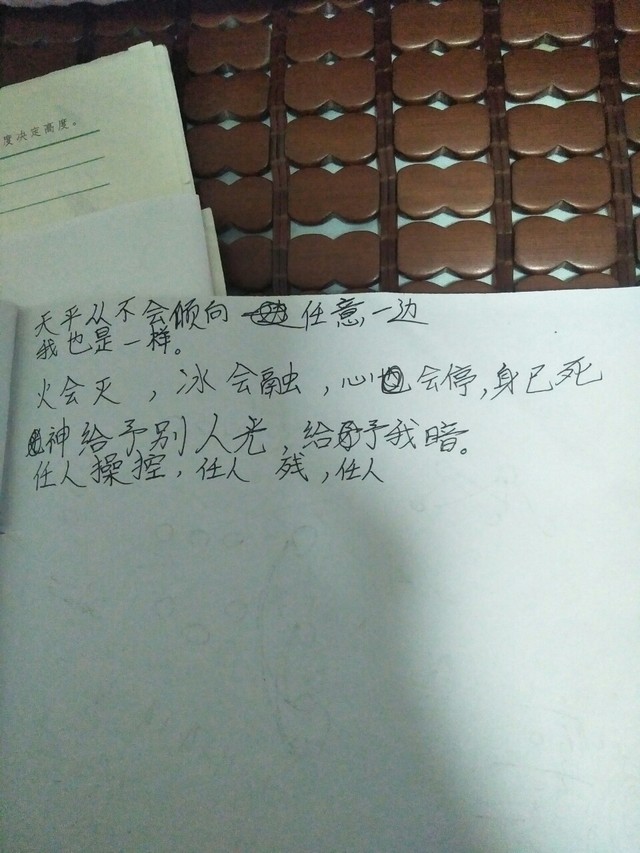 度决定高度。
天平从不会倾向任意一边
我也是一样。
火会灭，冰会融，心也会停，身已死
神给予别人光，给予我暗。
任人操控，任人 残，任人